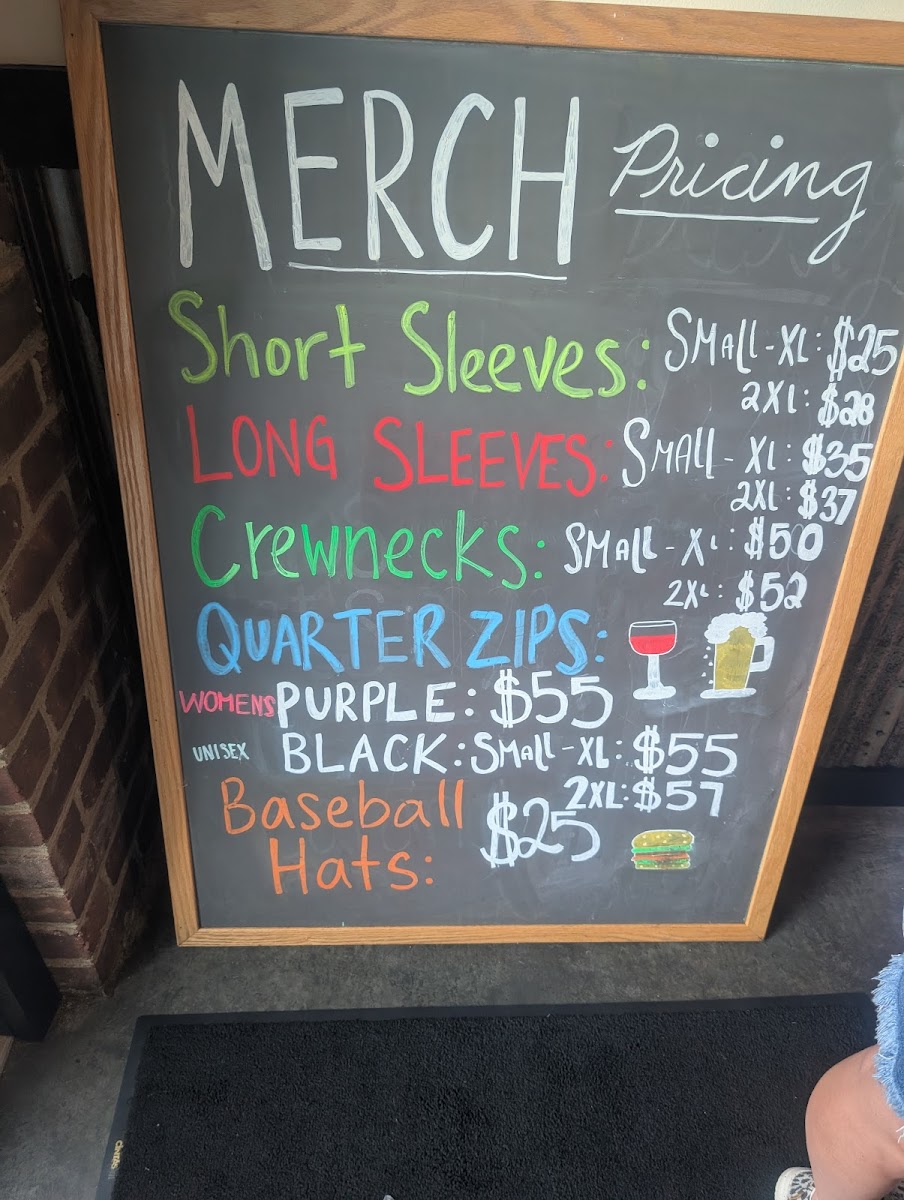 MERCH Pricing
Short Sleeves: Small-XL: $25
2XL: $28
LONG SLEEVES: Small - XL: $35
2XL: $37
Crewnecks: Small - XL: $50
2XL: $52
QUARTER ZIPS:
WOMENS PURPLE: $55
UNISEX BLACK: Small-XL: $55
2XL: $57
Baseball
Hats: $25